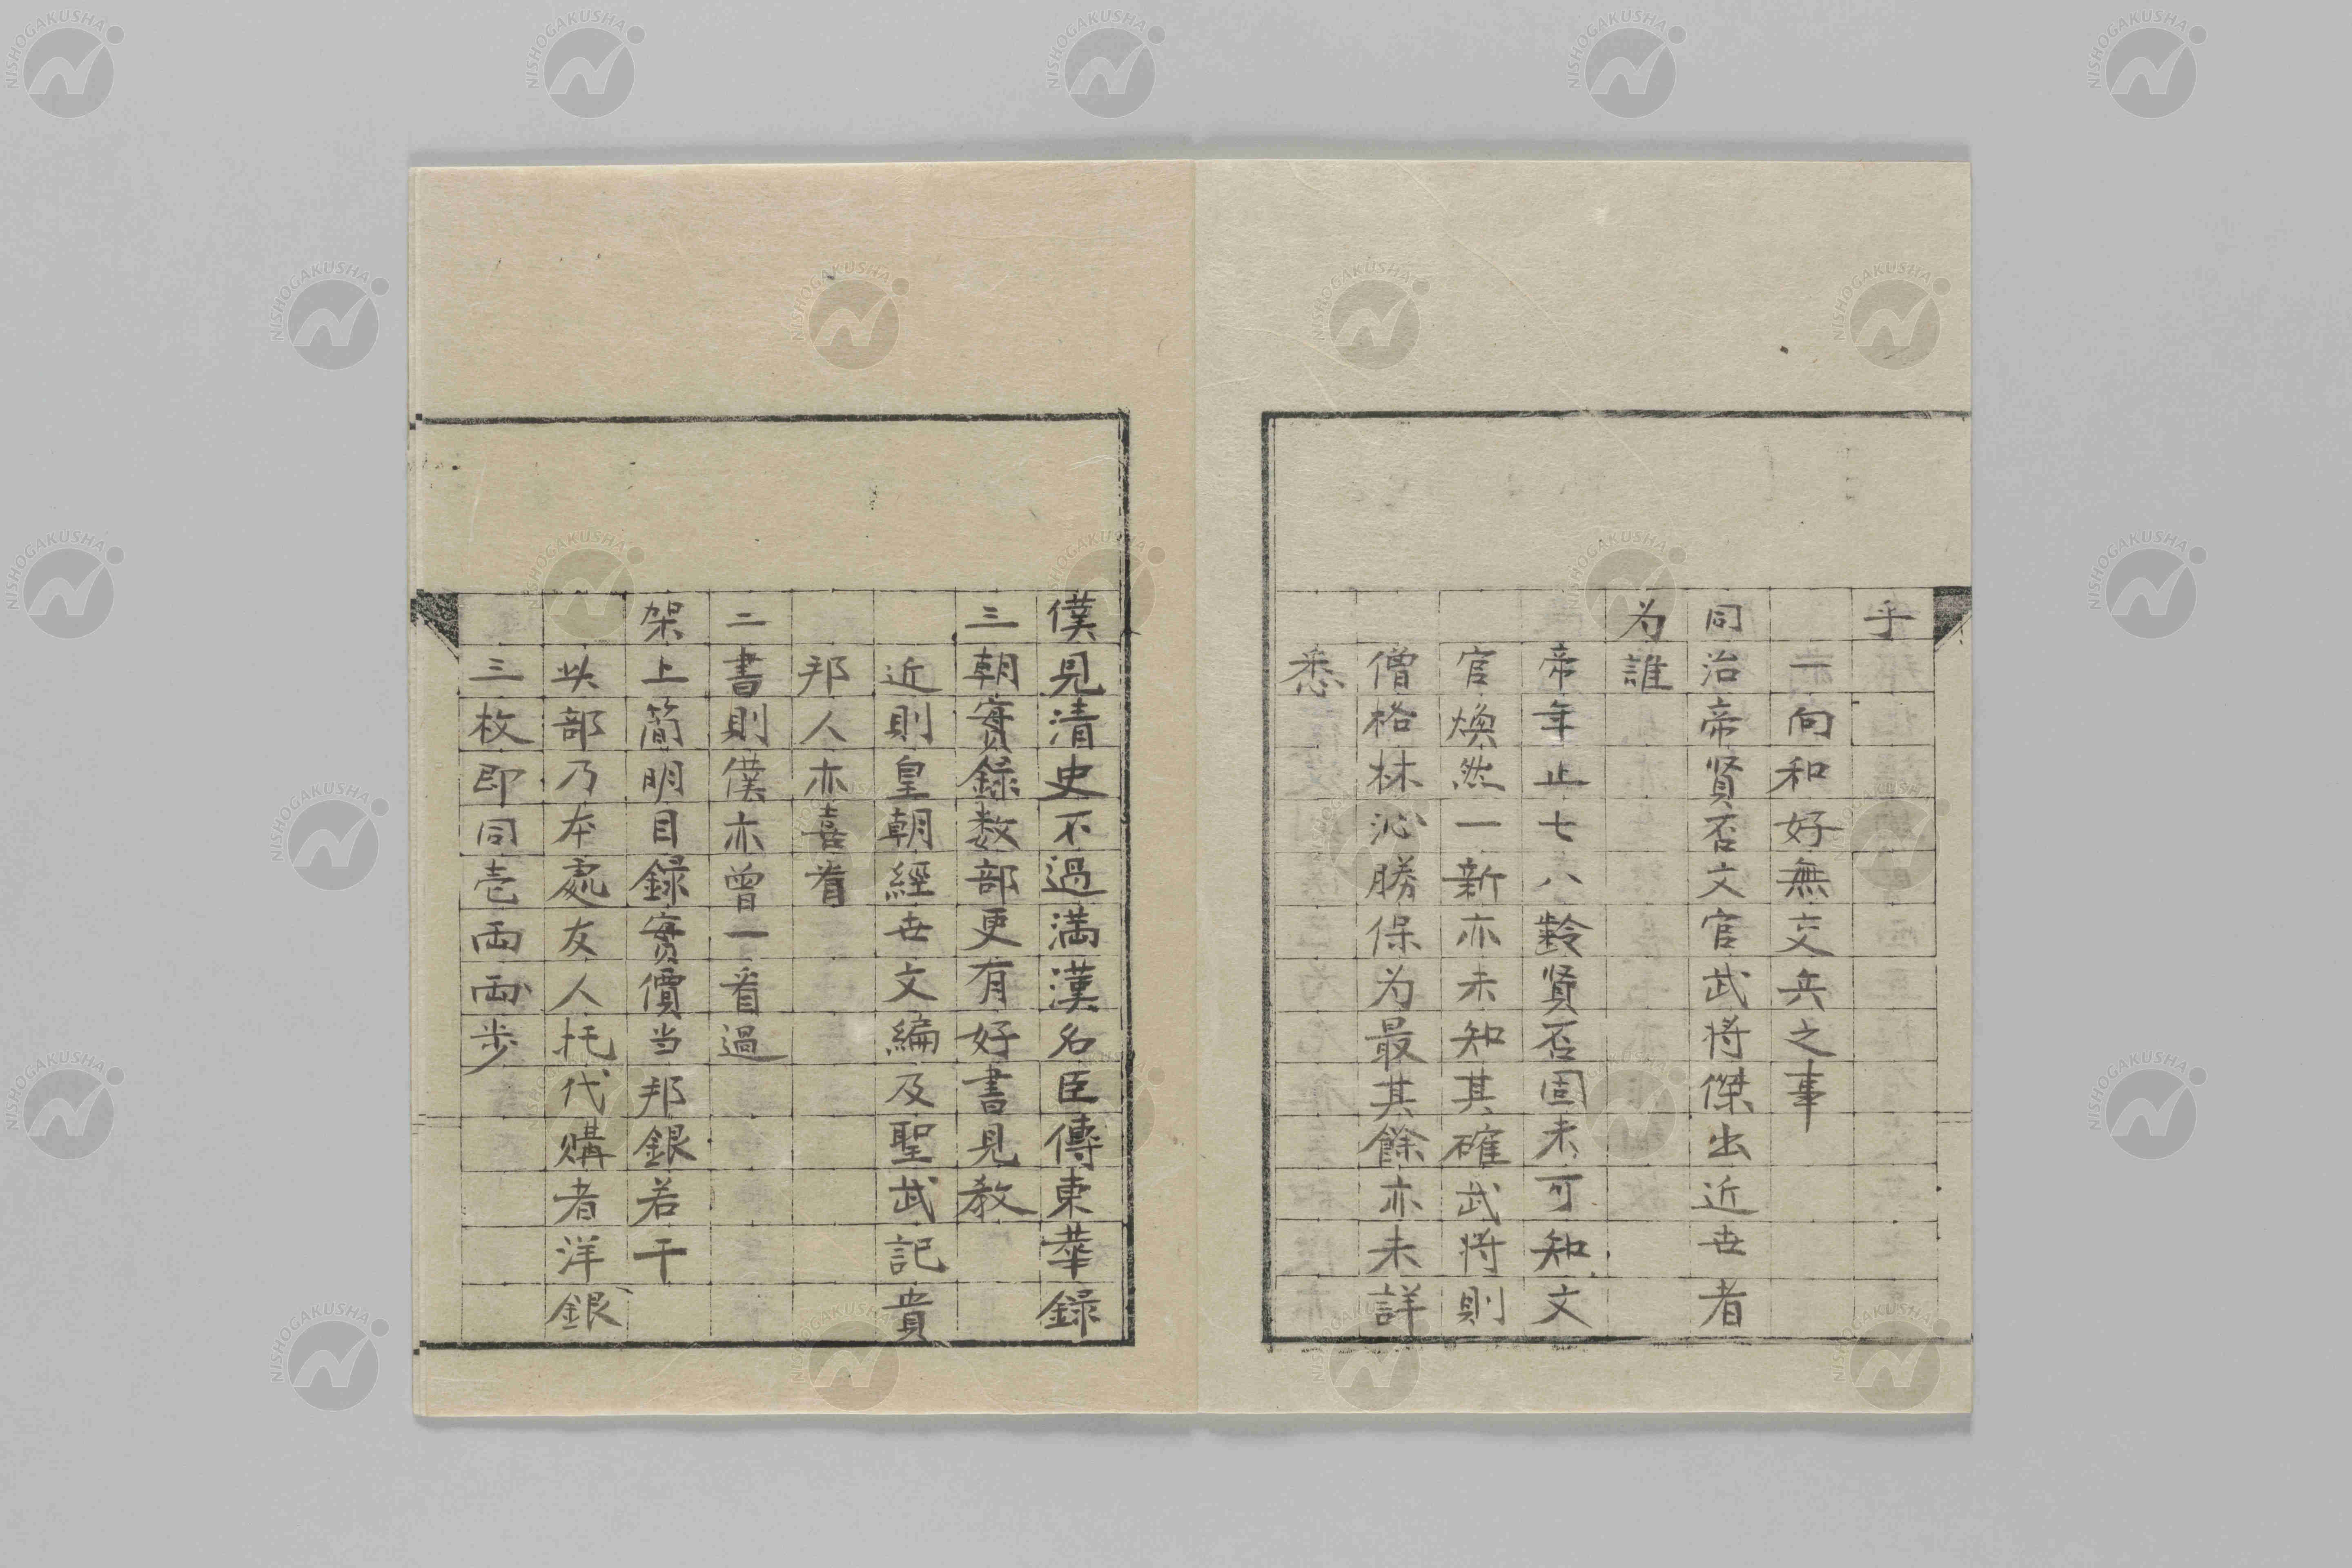 乎
一向和好無交兵之事
同治帝賢否文官武将傑出近世者
为誰
帝年止七八齡賢否固未可知文
官煥然一新亦未知其確武将則
僧格林沁勝保为最其餘亦未詳
悉
僕見清史不過満漢名臣傳東華録
三朝實録数部更有好書見教
近則皇朝經世文編及聖武記貴
邦人亦喜看
二書則僕亦曾一看過
架上簡明目録實價当邦銀若干
此部乃本處友人托代購者洋銀
三枚即同壱両両歩
NISHOGAKUSHA